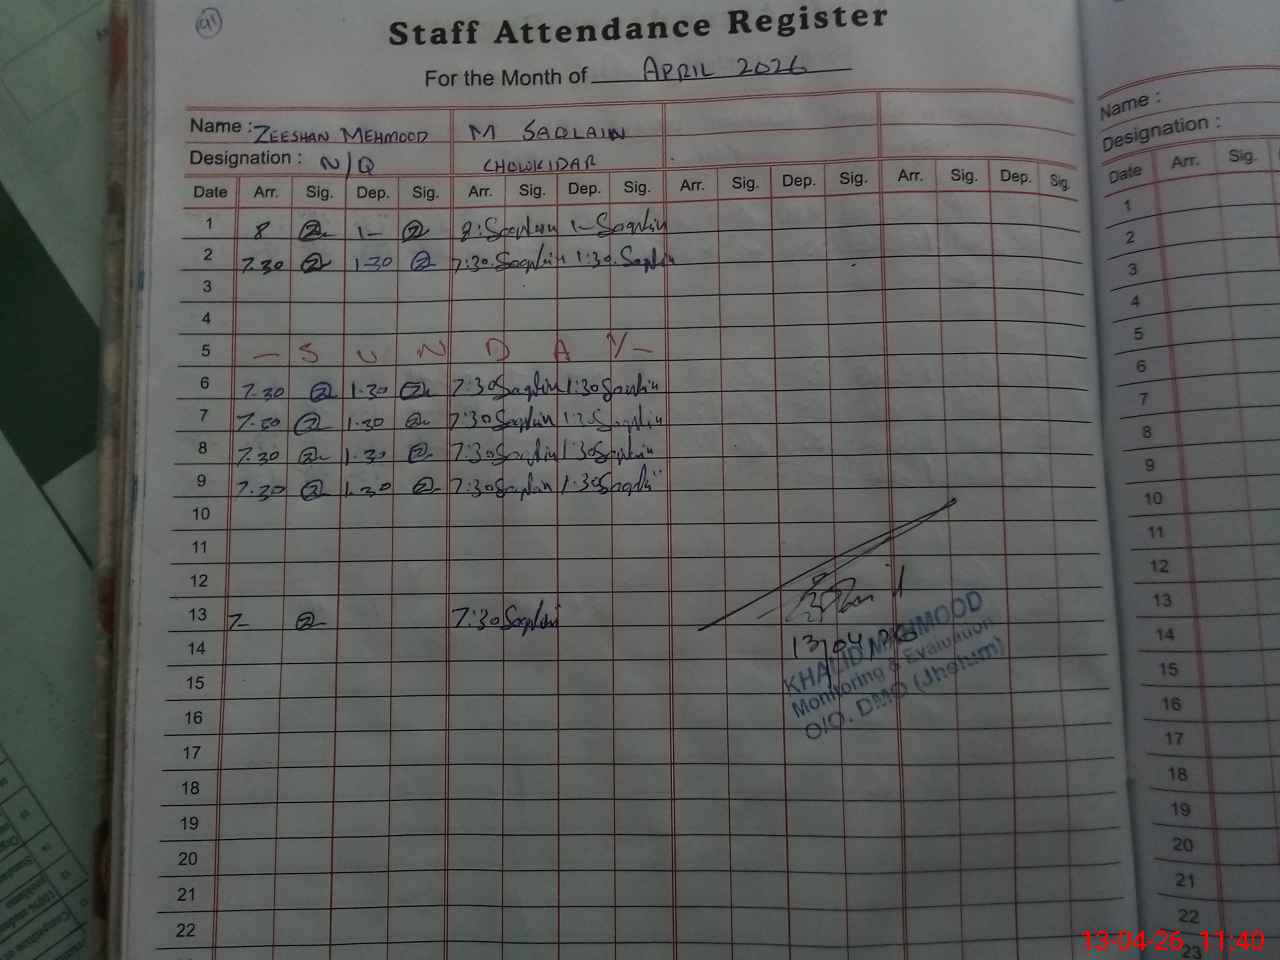 91
Staff Attendance Register
For the Month of APRIL 2026
Name : ZEESHAN MEHMOOD M SAQLAIN
Designation : N/Q CHOWKIDAR
Date Arr. Sig. Dep. Sig. Arr. Sig. Dep. Sig. Arr. Sig. Dep. Sig. Arr. Sig. Dep. Sig.
1 8 1- 8: Saqlain 1- Saqlain
2 7.30 1.30 7:30. Saqlain 1:30. Saqlain
3
4
5 - S U N D A Y -
6 7.30 1.30 7:30 Saqlain 1:30 Saqlain
7 7.30 1.30 7:30 Saqlain Saqlain
8 7.30 1.30 7:30 Saqlain 1:30 Saqlain
9 7.30 1.30 7:30 Saqlain 1:30 Saqlain
10
11
12
13 7- 7:30 Saqlain
14
15
16
17
18
19
20
21
22
13/04/26
KHALID MEHMOOD
Monitoring & Evaluation
O/O. DMO (Jhelum)
Name :
Designation :
Date Arr. Sig.
1
2
3
4
5
6
7
8
9
10
11
12
13
14
15
16
17
18
19
20
21
22
23
13-04-26 11:40